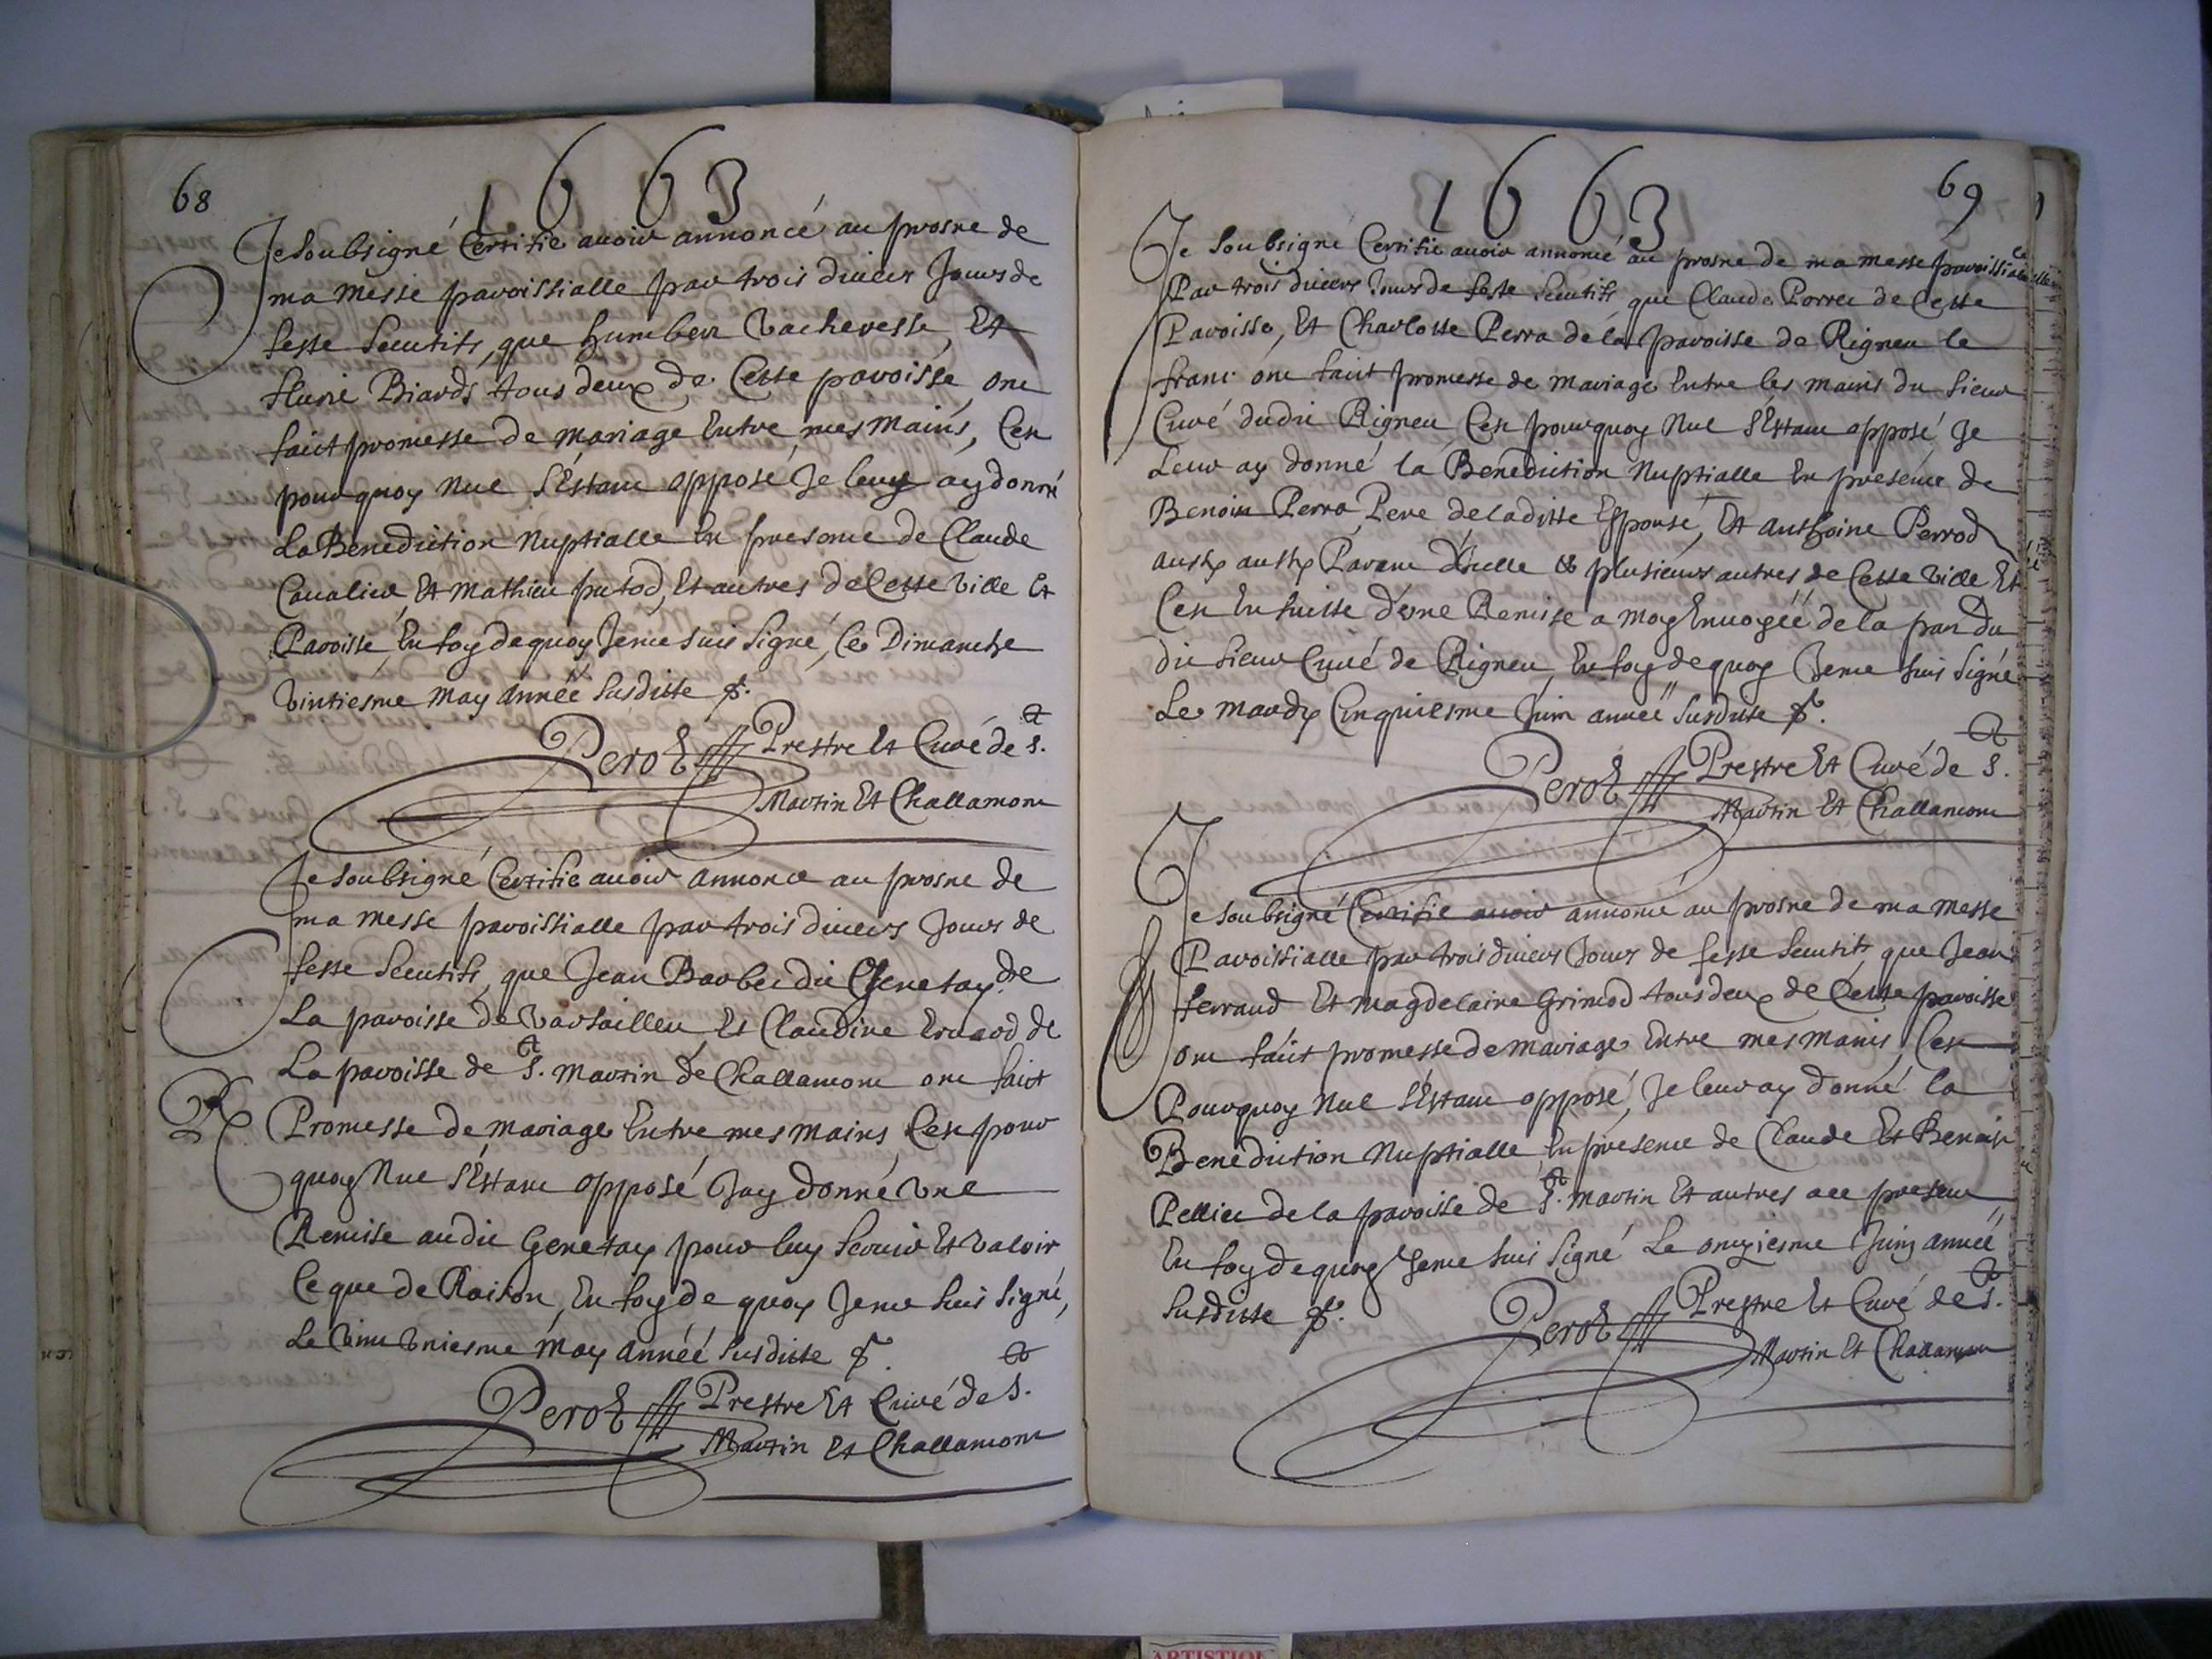 68
1663
Je soubsigné Certifie auoir annoncé au prosne de
ma messe paroissialle par trois diuers Jours de
feste secutifs, que humbert Vacheresse, Et
flurie Biards tous deux de Cette paroisse, ont
faict promesse de mariage Entre mes mains, Cest
pourquoy Nul s'Estant opposé Je leur ay donné
La Benediction Nuptialle En presence de Claude
Caualier Et Mathieu putod, Et autres de Cette Ville Et
Paroisse, En foy de quoy Je me suis signé, Ce Dimanche
Vintiesme May Année susditte
Perot Prestre Et Curé de St.
Martin Et Challamont
Je soubsigné Certifie auoir annoncé au prosne de
ma messe paroissialle par trois diuers Jours de
feste secutifs, que Jean Barbet dit Genetay de
La paroisse de Varsailleu, Et Claudine de
La paroisse de St. Martin de Challamont ont faict
Promesse de mariage Entre mes mains, Cest pour
quoy Nul s'Estant opposé Jay donné Vne
Remise audit Genetay pour luy seruir Et Valoir
Ce que de Raison, En foy de quoy Je me suis signé,
Le Vint Vniesme May Année susditte
Perot Prestre Et Curé de St.
Martin Et Challamont
69
1663
Je soubsigné Certifie auoir annoncé au prosne de ma messe paroissialle
Par trois diuers Jours de feste secutifs que Claude Porret de Cette
Paroisse, Et Charlotte Perra de la paroisse de Rigneu le
franc ont faict promesse de mariage Entre les mains du sieur
Curé dudit Rigneu Cest pourquoy Nul s'Estant opposé Je
Leur ay donné la Benediction Nuptialle En presence de
Benoist Perra Pere de laditte Espouse, Et anthoine Perrod
aussy aussy Parant d'Icelle & plusieurs autres de Cette Ville Et
Cest En suitte d'une Remise a moy Enuoyéé de la part du
dit sieur Curé de Rigneu, En foy de quoy Je me suis signé
Le mardy Cinquiesme Juin année susditte
Perot Prestre Et Curé de St.
Martin Et Challamont
Je soubsigné Certifie auoir annoncé au prosne de ma messe
Paroissialle par trois diuers Jours de feste secutifs, que Jean
ferraud Et Magdelaine Grimod tous deux de Cette paroisse
ont faict promesse de mariage Entre mes mains, Cest
Pourquoy Nul s'Estant opposé, Je leur ay donné la
Benediction Nuptialle En presence de Claude Et Benoist
Pellier de la paroisse de St. Martin Et autres
En foy de quoy Je me suis signé Le onziesme Juin année
susditte
Perot Prestre Et Curé de St.
Martin Et Challamont